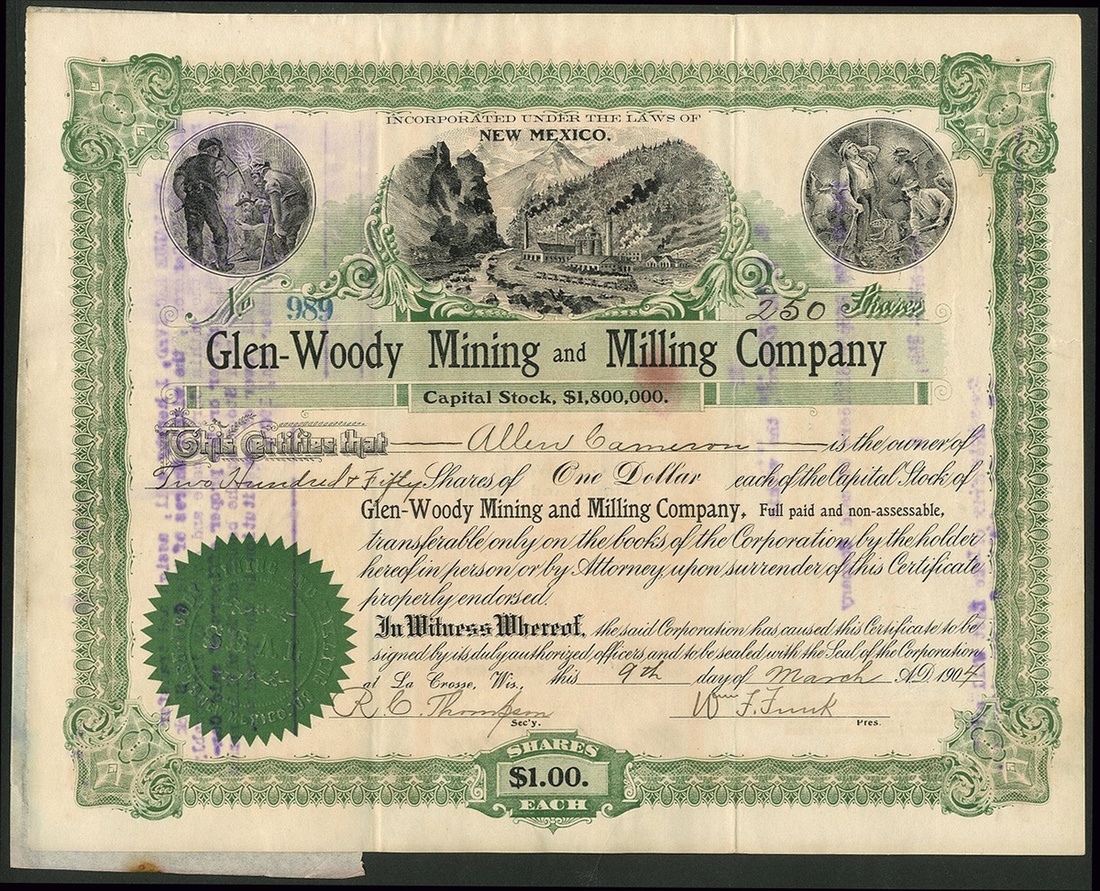 INCORPORATED UNDER THE LAWS OF
NEW MEXICO.
No 989
250 Shares
Glen-Woody Mining and Milling Company
Capital Stock, $1,800,000.
This Certifies that Allen Cameron is the owner of
Two Hundred & Fifty Shares of One Dollar each of the Capital Stock of
Glen-Woody Mining and Milling Company. Full paid and non-assessable,
transferable only on the books of the Corporation by the holder
hereof in person or by Attorney, upon surrender of this Certificate
properly endorsed.
In Witness Whereof, the said Corporation has caused this Certificate to be
signed by its duly authorized officers, and to be sealed with the Seal of the Corporation
at La Crosse, Wis., this 9th day of March A.D. 1904
R. C. Thompson Sec'y.
Wm F. Funk Pres.
SEAL
SHARES
$1.00.
EACH
Goes